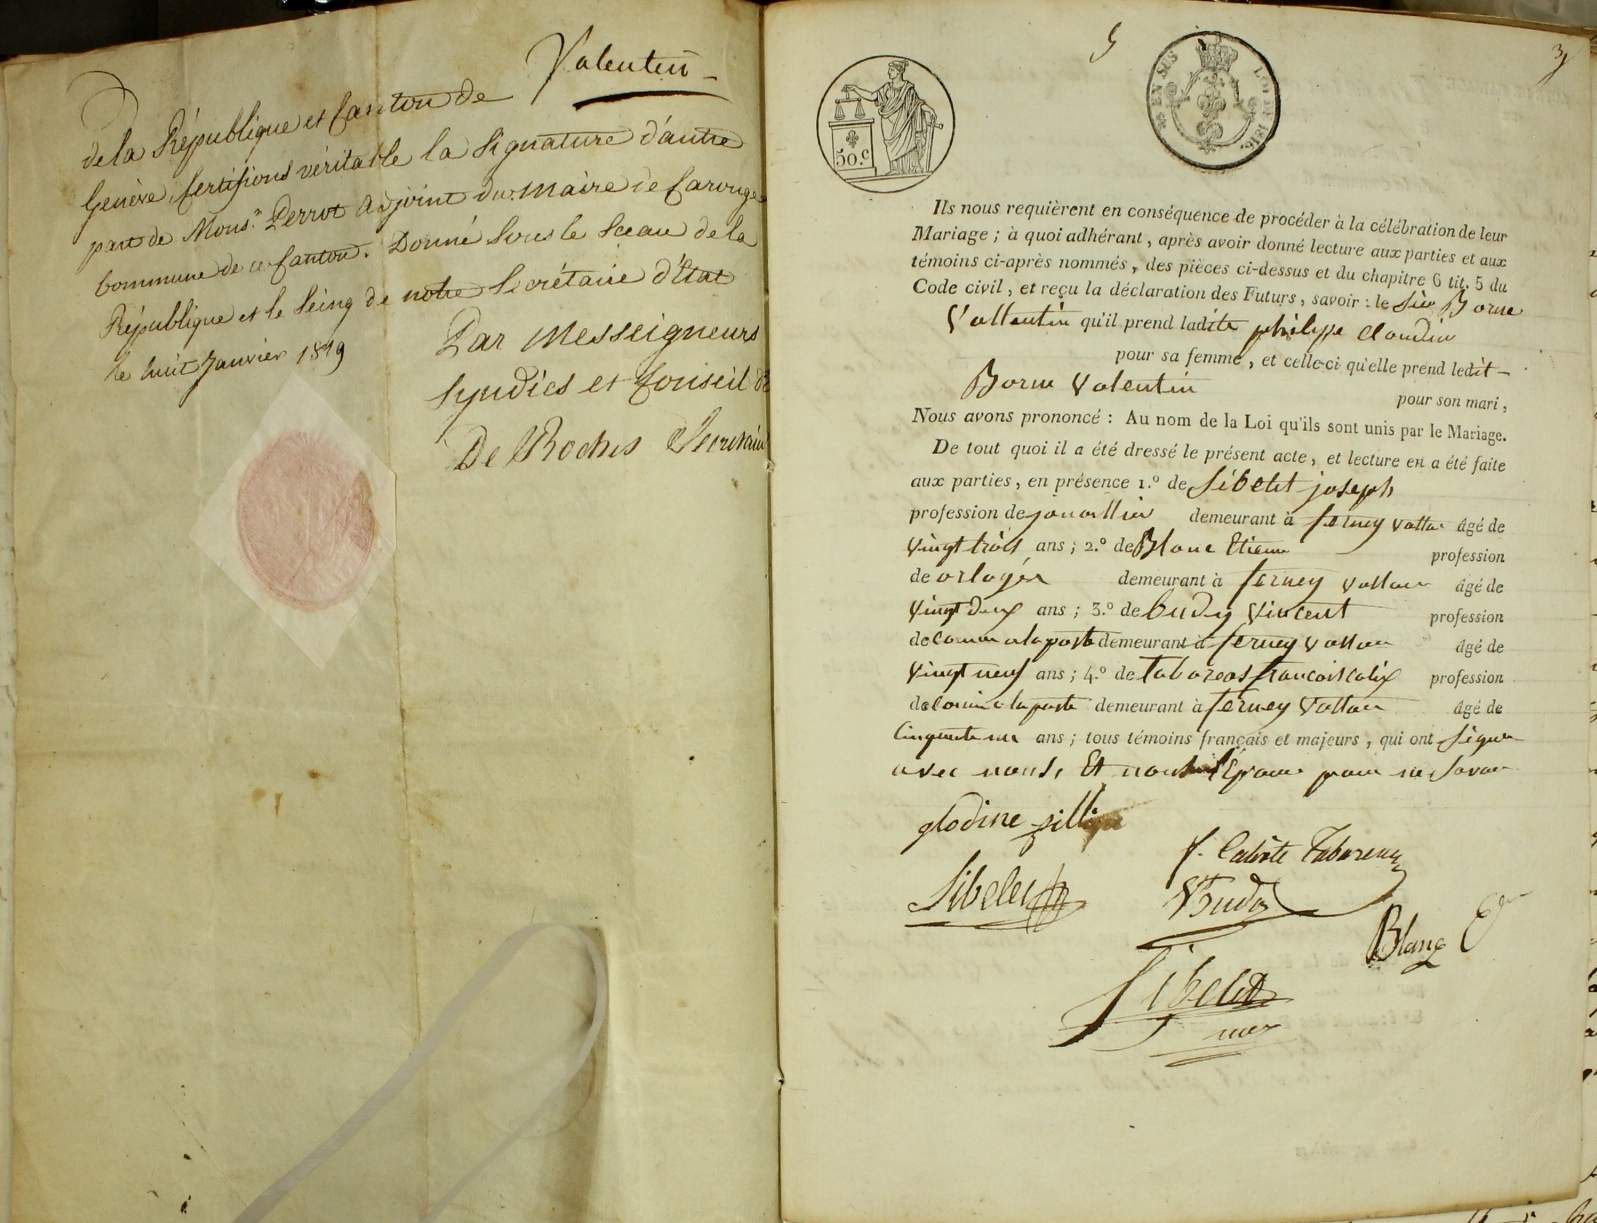 Valentin
de la République et Canton de
Genève, Certifions véritable la Signature d'autre
part de Mons.r Perrot Adjoint du Maire de Carouge
Commune de ce Canton. Donné Sous le Sceau de la
République et le Seing de notre Secrétaire d'État
le huit Janvier 1819
Par Messeigneurs
Syndics et Conseil
De Roches
5
50.c
EN SUS
LOI DE 1816.
Ils nous requièrent en conséquence de procéder à la célébration de leur
Mariage ; à quoi adhérant, après avoir donné lecture aux parties et aux
témoins ci-après nommés, des pièces ci-dessus et du chapitre 6 tit. 5 du
Code civil, et reçu la déclaration des Futurs, savoir : le Sieur Borne
Vallentin qu'il prend ladite philippe Claudin
pour sa femme, et celle-ci qu'elle prend ledit
Borne Valentin pour son mari,
Nous avons prononcé : Au nom de la Loi qu'ils sont unis par le Mariage.
De tout quoi il a été dressé le présent acte, et lecture en a été faite
aux parties, en présence 1.° de Sibelet joseph
profession de demeurant à ferney âgé de
vingt trois ans ; 2.° de Blanc Etienne profession
de orlogér demeurant à ferney âgé de
vingt deux ans ; 3.° de Budy Vincent profession
de comm a la poste demeurant à ferney âgé de
vingt neuf ans ; 4.° de francois calix profession
de comm a la poste demeurant à ferney âgé de
Cinquante ans ; tous témoins français et majeurs, qui ont signé
avec nous, Et non l'Epoux pour ne Savoir
glodine
f. Calixte Tabareau
Sibelet
VBudy
Blanc E
Sibelet